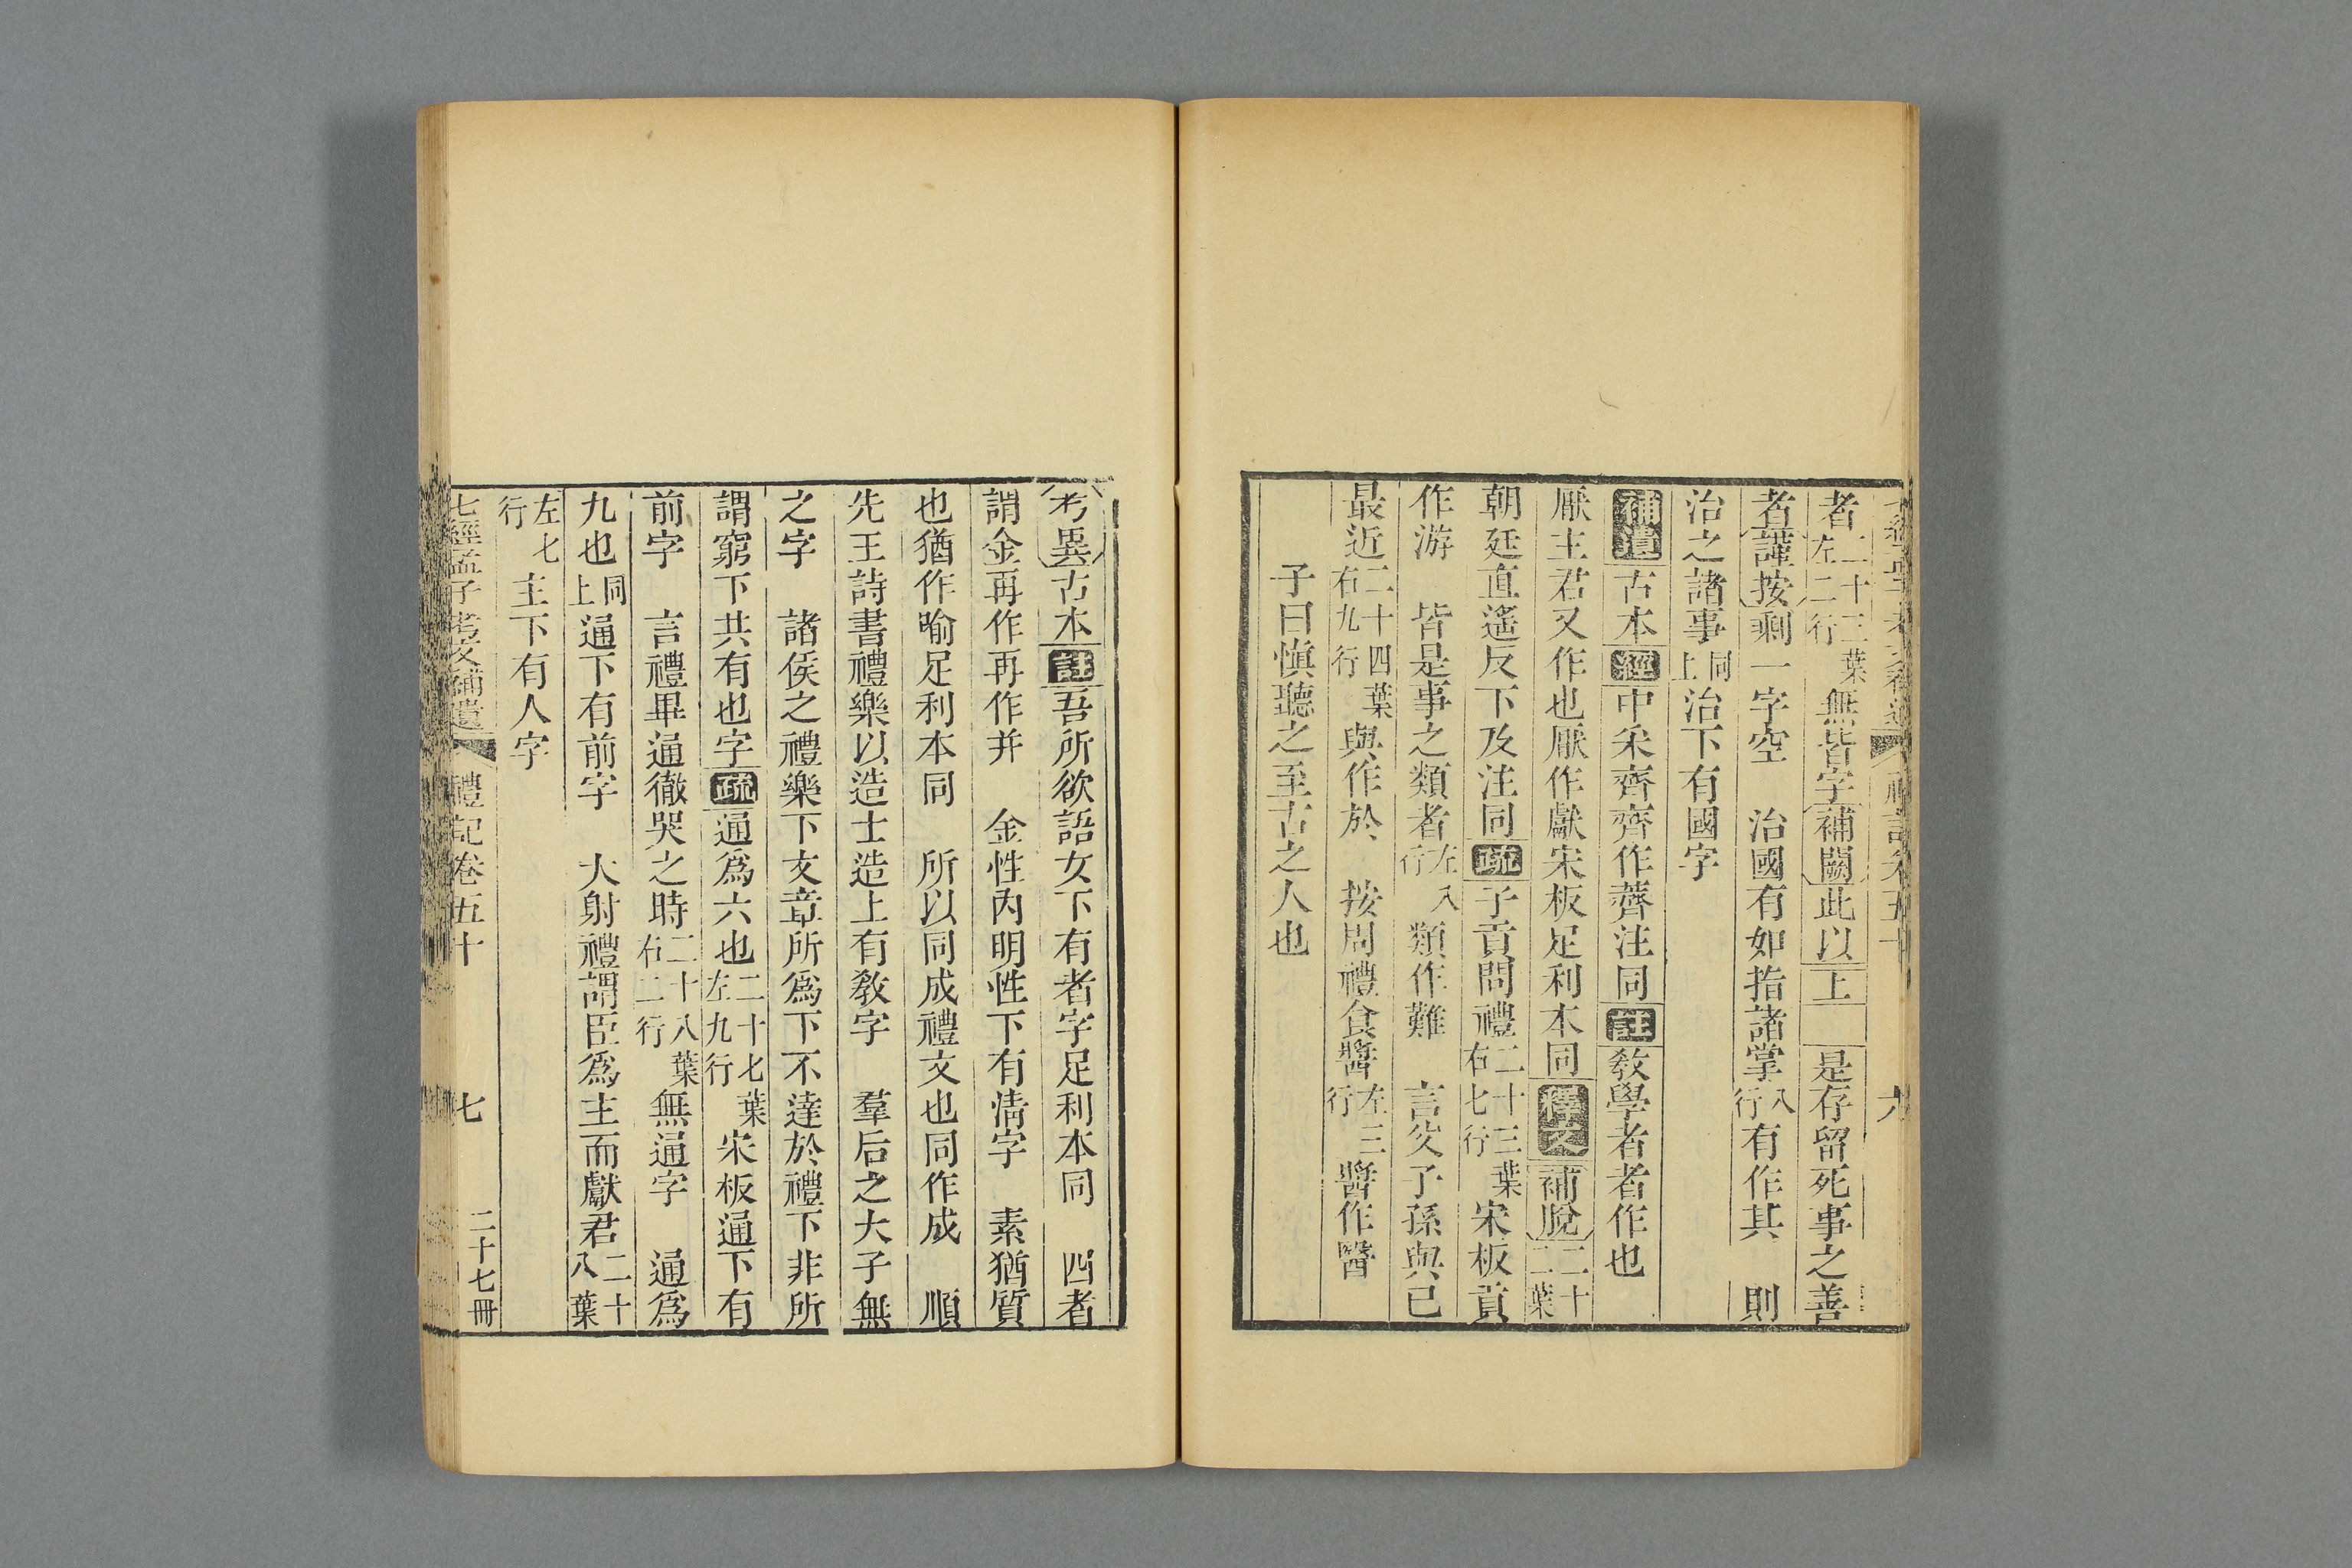 者二十三葉左二行無皆字補闕此以上 是存留死事之善
者謹按剩一字空 治國有如指諸掌八行有作其 則
治之諸事同上治下有國字
補遺古本經中采齊齊作薺注同註教學者者作也
厭主君又作也厭作獻宋板足利本同釋文補脫二十二葉
朝廷直遙反下及注同疏子貢問禮二十三葉右七行宋板貢
作游 皆是事之類者左八行類作難 言父子孫與己
最近二十四葉右九行與作於 按周禮食醬左三行醬作醫
子曰慎聽之至古之人也
考異古本註吾所欲語女下有者字足利本同 四者
謂金再作再作并 金性內明性下有清字 素猶質
也猶作喻足利本同 所以同成禮文也同作成 順
先王詩書禮樂以造士造上有教字 羣后之大子無
之字 諸侯之禮樂下文章所爲下不達於禮下非所
謂窮下共有也字疏通爲六也二十七葉左九行宋板通下有
前字 言禮畢通徹哭之時二十八葉右二行無通字 通爲
九也同上通下有前字 大射禮謂臣爲主而獻君二十八葉
左七行主下有人字
七經孟子考文補遺 禮記卷五十 七 二十七冊